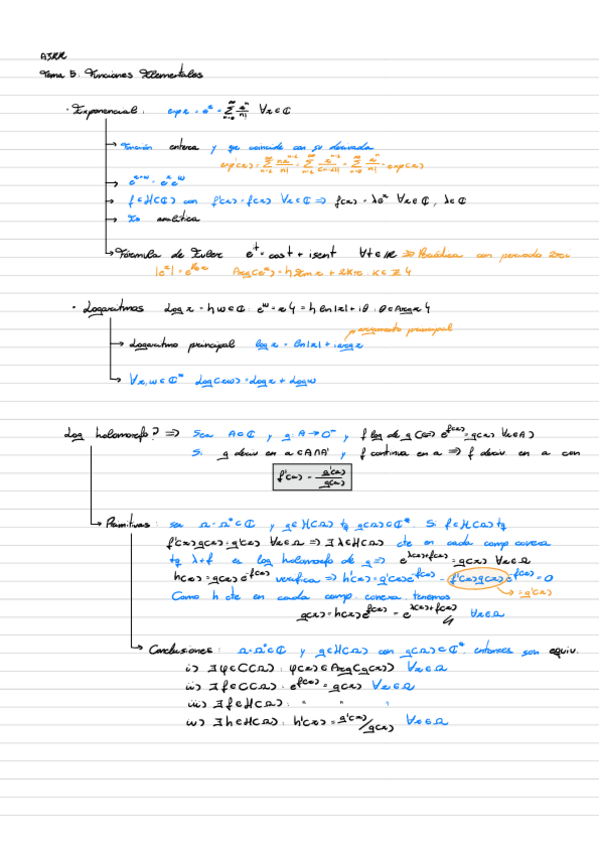 AJRR
Tema 5: Funciones Elementales
· Exponencial: exp z = e^z = Σ_{n=0}^∞ z^n/n! ∀z∈ℂ
→ Función entera y que coincide con su derivada
exp'(z) = Σ_{n=1}^∞ n z^{n-1}/n! = Σ_{n=1}^∞ z^{n-1}/(n-1)! = Σ_{n=0}^∞ z^n/n! = exp(z)
→ e^{z+w} = e^z e^w
→ f∈H(ℂ) con f'(z) = f(z) ∀z∈ℂ ⇒ f(z) = λe^z ∀z∈ℂ, λ∈ℂ
→ Es analítica
→ Fórmula de Euler e^{it} = cos t + i sen t ∀t∈ℝ ⇒ Periódica con periodo 2πi
|e^z| = e^{Re z} Arg(e^z) = {Im z + 2kπ : k∈ℤ}
· Logaritmos Log z = {w∈ℂ : e^w = z} = {ln|z| + iθ : θ∈Arg z}
argumento principal
→ Logaritmo principal log z = ln|z| + i arg z
→ ∀z,w∈ℂ* Log(zw) = Log z + Log w
Log holomorfo? ⇒ Sea A⊂ℂ y g: A→ℂ*, f log de g (⇔ e^{f(z)} = g(z) ∀z∈A)
Si g deriv en a∈A∩A' y f continua en a ⇒ f deriv en a con
f'(a) = g'(a)/g(a)
→ Primitivas: sea Ω=Ω°⊂ℂ y g∈H(Ω) tq g(Ω)⊂ℂ*. Si f∈H(Ω) tq
f'(z)g(z) = g'(z) ∀z∈Ω ⇒ ∃λ∈H(Ω) cte en cada comp conexa
tq λ+f es log holomorfo de g ⇒ e^{λ(z)+f(z)} = g(z) ∀z∈Ω
h(z) = g(z)e^{-f(z)} verifica ⇒ h'(z) = g'(z)e^{-f(z)} - f'(z)g(z)e^{-f(z)} = 0
Como h cte en cada comp. conexa tenemos = g'(z)
g(z) = h(z)e^{f(z)} = e^{λ(z)+f(z)} ∀z∈Ω
→ Conclusiones: Ω=Ω°⊂ℂ y g∈H(Ω) con g(Ω)⊂ℂ*, entonces son equiv.
i) ∃φ∈C(Ω): φ(z)∈Arg(g(z)) ∀z∈Ω
ii) ∃f∈C(Ω): e^{f(z)} = g(z) ∀z∈Ω
iii) ∃f∈H(Ω): " " "
iv) ∃h∈H(Ω): h'(z) = g'(z)/g(z) ∀z∈Ω